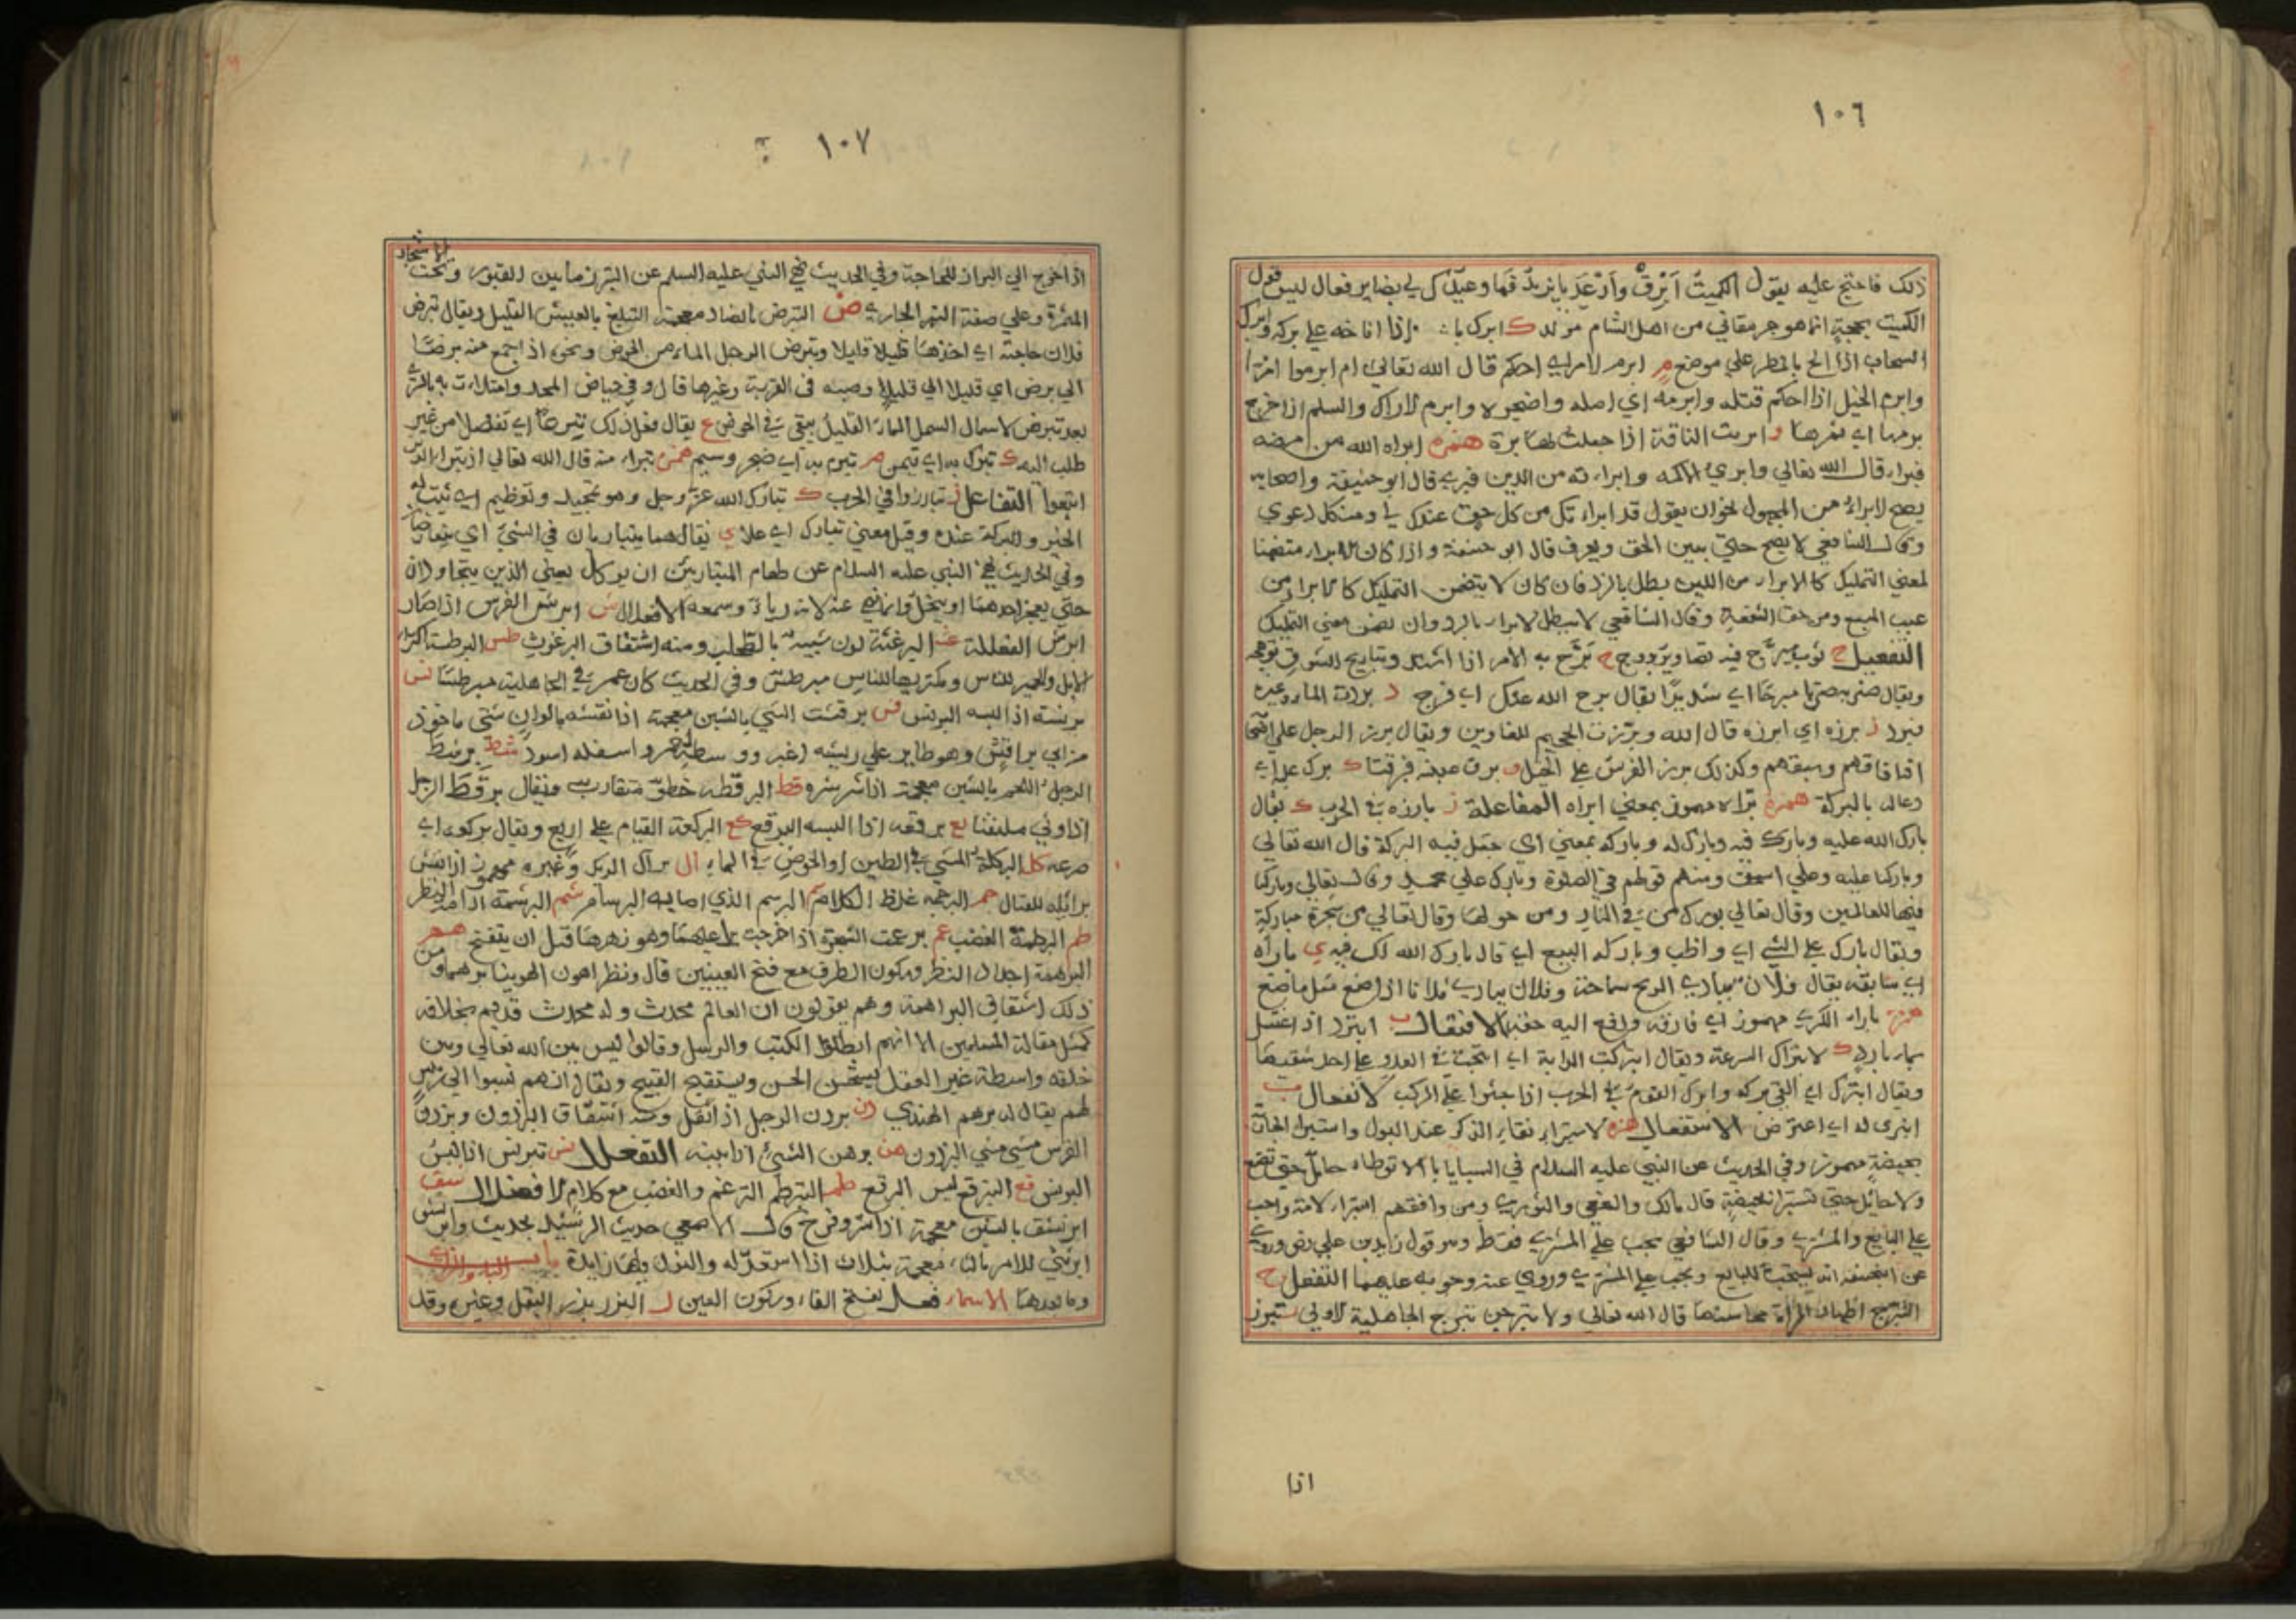 ١٠٦
ذلك فاحتج عليه بقول الكميت اَبْرِقْ وَاَرْعِدْ يا يزيد فما وعيدك لي بضاير فقال ليس قول
الكميت بحجة انما هو جرمقاني من اهل الشام مولد ك ابرك اذا اناخه علي بركه وابرك
السحاب اذا الح بالمطر علي موضع م ابرم الامر اي احكم قال الله تعالي ام ابرموا امرا
وابرم الحبل اذا احكم فتله وابرمه اي امله واضجره وابرم الاراك والسلم اذا خرج
برمها اي ثمرها و ابريت الناقة اذا جعلت لها برة همزه ابراه الله من مرضه
فبراء قال الله تعالي وابرئ الاكمه وابراءته من الدين فبرئ قال ابو حنيفة واصحابه
يصح الابراء من المجهول نحو ان يقول قد ابراءتك من كل حق عندك لي ومن كل دعوي
وقال الشافعي لا يصح حتي يبين الحق ويعرف قال ابو حنيفة واذا كان الابراء متضمنا
لمعني التمليك كالابراء من الدين بطل بالرد فان كان لا يتضمن التمليك كالابراء من
عيب المبيع ومن حق الشفعة وقال الشافعي لا يبطل الابراء بالرد وان تضمن معني التمليك
التفعيل ج ثوب مبرج فيه تصاوير بروج ح برّح به الامر اذا اشتد وتباريح الشوق توهجه
ويقال ضربه ضربا مبرحا اي شديدًا يقال برح الله عنك اي فرج د برده الماء وغيره
فبرد ز برزه اي ابرزه قال الله وبرّزت الجحيم للغاوين ويقال برز الرجل علي اصحابه
اذا فاقهم وسبقهم وكذلك برز الفرس علي الخيل ق برق عينه فرقتا ك برك عليه اي
دعا له بالبركة همزه برّاه مهموز بمعني ابراه المفاعلة ز بارزه في الحرب ك يقال
بارك الله عليه وبارك فيه وبارك له وباركه بمعني اي جعل فيه البركة قال الله تعالي
وباركنا عليه وعلي اسحق ومنه قولهم في الصلوة وبارك علي محمد وقال تعالي وباركنا
فيها للعالمين وقال تعالي بورك من في النار ومن حولها وقال تعالي من شجرة مباركة
ويقال بارك علي الشي اي واظب وبارك له البيع اي قال بارك الله لك فيه ي باراه
اي سابقه يقال فلان يباري الريح سماحة وفلان يباري فلانا اذا صنع مثل ما صنع
همزه باراء الكري مهموز اي فارقه ودفع اليه حقه الافتعال ب ابترد اذا اغتسل
بماء بارد ك الابتراك السرعة ويقال ابتركت الدابة اي انتحت في العدو علي احد شقيها
ويقال ابترك اي القي بركه وابترك القوم في الحرب اذا جثوا علي الركب الانفعال ي
انبري له اي اعترض الاستفعال همزه الاستبراء نقاء الذكر عند البول واستبراء الجارية
بحيضة مهموز وفي الحديث عن النبي عليه السلام في السبايا الا لا توطاء حامل حتي تضع
ولا حائل حتي تستبرا بحيضة قال مالك والنخعي والثوري ومن وافقهم استبراء الامة واجب
علي البايع والمشتري وقال الشافعي يجب علي المشتري فقط وهو قول زيد بن علي رض وروي
عن ابي حنيفه انه يستحب للبايع ويجب علي المشتري وروي عنه وجوبه عليهما التفعل ج
التبرّج اظهار المراة محاسنها قال الله تعالي ولا تبرجن تبرج الجاهلية الاولي ز تبرز
اذا
١٠٧
اذا خرج الي البراز للحاجة وفي الحديث نهي النبي عليه السلم عن التبرز ما بين القبور وتحت الاشجار
المثمرة وعلي صفة النهر الجاري ض التبرض بالضاد معجمة التبلغ بالعيش القليل ويقال تبرض
فلان حاجته اي اخذها قليلا قليلا وتبرض الرجل الماء من الحوض ونحوه اذا جمع منه برضا
الي برض اي قليلا الي قليل وصبه في القربة وغيرها قال وفي حياض المجد وامتلاءت به بالري
بعد تبرض الاسمال السمل الماء القليل يبقي في الحوض ع يقال فعل ذلك تبرعا اي تفضلا من غير
طلب اليه ك تبرّك به اي تيمن م تبرم به اي ضجر وسيم همزه تبراء منه قال الله تعالي اذ تبرا الذين
اتبعوا التفاعل ز تبارزوا في الحرب ك تبارك الله عز وجل وهو تمجيد وتعظيم اي ثبت له
الخير والبركة عنده وقيل معني تبارك اي علا ي يقال هما يتباريان في الشيء اي يتعارضان
وفي الحديث نهي النبي عليه السلام عن طعام المتباريين ان يوكل يعني الذين يتجاودان
حتي يعجز احدهما او يبخل وانما نهي عنه لانه رياء وسمعه الافعلال ش ابرشّ الفرس اذا صار
ابرش الفعللة غث البرغثة لون شبيه بالطحلب ومنه اشتقاق البرغوث طس البرطسة اكتراء
الابل والحمير للناس ومكتريها للناس مبرطس وفي الحديث كان عمر في الجاهلية مبرطسا نس
برنسه اذا البسه البرنس قش برقشت الشي بالشين معجمة اذا نقشته بالوان شتي ماخوذ
من ابي براقش وهو طاير علي ريشه اغبر ووسطه احمر واسفله اسود شط برشط
الرجل اللحم بالشين معجمة اذا شرشره قط البرقطه خطو متقارب ويقال برقط الرجل
اذا ولي ملتفتا قع برقعه اذا البسه البرقع كع البركعة القيام علي اربع ويقال بركعه اي
صرعه كل البركلة المشي في الطين او الخوض في الماء ال برال الديك وغيره مهموز اذا نفش
برائله للقتال جم البرجمه غلظ الكلام سم البرسم الذي اصابه البرسام شم البرشمة ادامة النظر
طم البرطمة الغضب عم برعمت الشجرة اذا خرجت براعيمها وهو زهرها قبل ان يتفتح هم
البرهمة ادامة النظر وسكون الطرف مع فتح العينين قال ونظرا هون الهوينا برهما ومن
ذلك اشتقاق البراهمة وهم يقولون ان العالم محدث وله محدث قديم بخلافه
كمثل مقالة المسلمين الا انهم ابطلوا الكتب والرسل وقالوا ليس بين الله تعالي وبين
خلقه واسطة غير العقل يستحسن الحسن ويستقبح القبيح ويقال انهم نسبوا الي رئيس
لهم يقال له برهم الهندي ذن برذن الرجل اذا ثقل ومنه اشتقاق البرذون وبرذن
الفرس مشي مشي البرذون هن برهن الشيء اذا بينه التفعلل نس تبرنس اذا لبس
البرنس قع التبرقع لبس البرقع طم التبرطم التزغم والغضب مع كلام الافعنلال شق
ابرنشق بالشين معجمة اذا سر وفرح قال الاصمعي حدثت الرشيد بحديث وابرنشق
ابرنتي للامر بالتاء معجمة بثلاث اذا استعد له والنون والهاء زايدة باب الباء والزاي
وما بعدهما الاسماء فعل بفتح الفاء وسكون العين ر البزر بزر البقل وغيره وقد